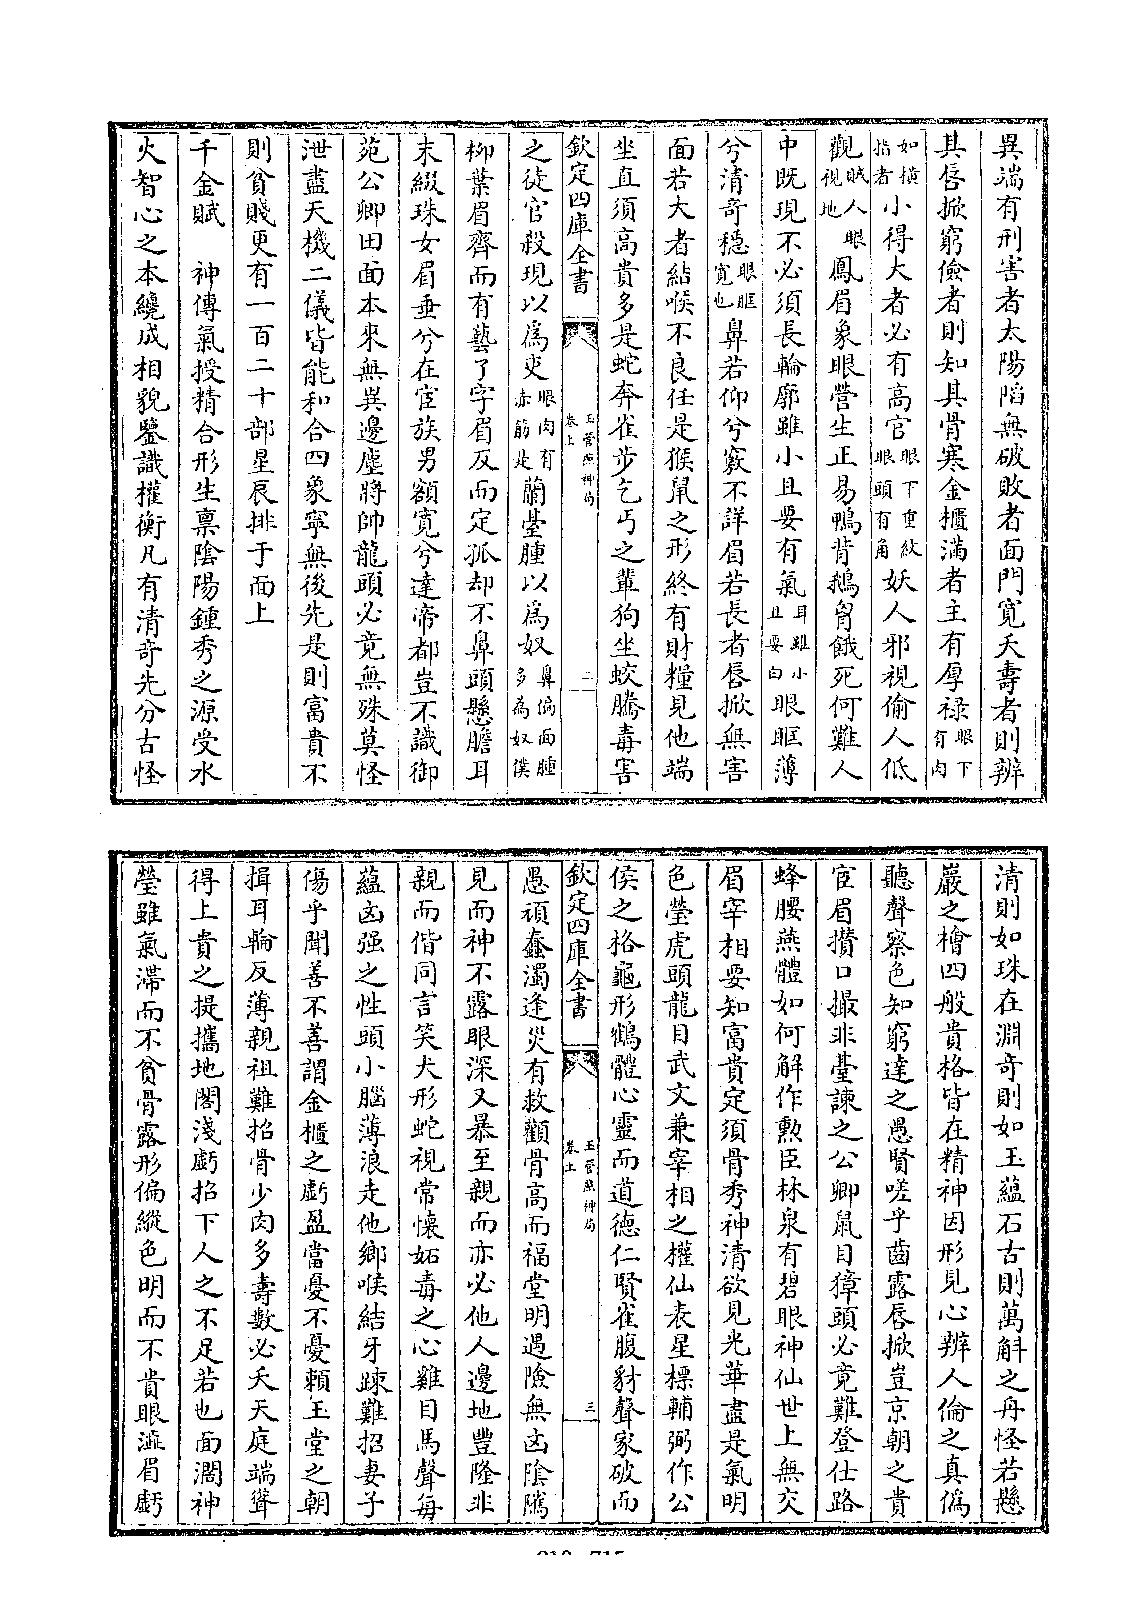 異端有刑害者太陽陷無破敗者面門寛夭壽者則辨
其唇掀窮儉者則知其骨寒金櫃滿者主有厚祿眼下有肉
如橫指者小得大者必有高官眼下重紋眼頭有角妖人邪視偷人低
觀賊人眼視地鳳眉象眼營生正易鴨背鵝胷餓死何難人
中既現不必須長輪廓雖小且要有氣耳雖小且要白眼眶薄
兮清奇穩眼眶寛也鼻若仰兮竅不詳眉若長者唇掀無害
面若大者結喉不良任是猴鼠之形終有財糧見他端
坐直須高貴多是蛇奔雀步乞丐之輩狗坐蛟騰毒害
欽定四庫全書
玉管照神局
卷上
二
之徒官殺現以爲吏眼肉有赤筋是蘭臺腫以爲奴鼻偏面腫多為奴僕
柳葉眉齊而有藝了字眉反而定孤却不鼻頭懸膽耳
末綴珠女眉垂兮在宦族男額寛兮達帝都豈不識御
苑公卿田面本來無異邊塵將帥龍頭必竟無殊莫怪
泄盡天機二儀皆能和合四象寧無後先是則富貴不
則貧賤更有一百二十部星辰排于面上
千金賦 神傳氣授精合形生禀陰陽鍾秀之源受水
火智心之本纔成相貌鑒識權衡凡有清奇先分古怪
清則如珠在淵奇則如玉蘊石古則萬斛之舟怪若懸
巖之檜四般貴格皆在精神因形見心辨人倫之真僞
聽聲察色知窮達之愚賢嗟乎齒露唇掀豈京朝之貴
宦眉攅口撮非臺諫之公卿鼠目獐頭必竟難登仕路
蜂腰燕體如何解作勲臣林泉有碧眼神仙世上無交
眉宰相要知富貴定須骨秀神清欲見光華盡是氣明
色瑩虎頭龍目武文兼宰相之權仙表星標輔弼作公
侯之格龜形鶴體心靈而道德仁賢雀腹豺聲家破而
欽定四庫全書
玉管照神局
卷上
三
愚頑蠢濁逢災有救顴骨高而福堂明遇險無凶陰隲
見而神不露眼深又暴至親而亦必他人邊地豐隆非
親而偕同言笑犬形蛇視常懷妬毒之心雞目馬聲每
蘊凶强之性頭小腦薄浪走他鄉喉結牙踈難招妻子
傷乎聞善不善謂金櫃之虧盈當憂不憂賴玉堂之朝
揖耳輪反薄親祖難招骨少肉多壽數必夭天庭端聳
得上貴之提攜地閣淺虧招下人之不足若也面濶神
瑩雖氣滯而不貧骨露形偏縱色明而不貴眼濇眉虧